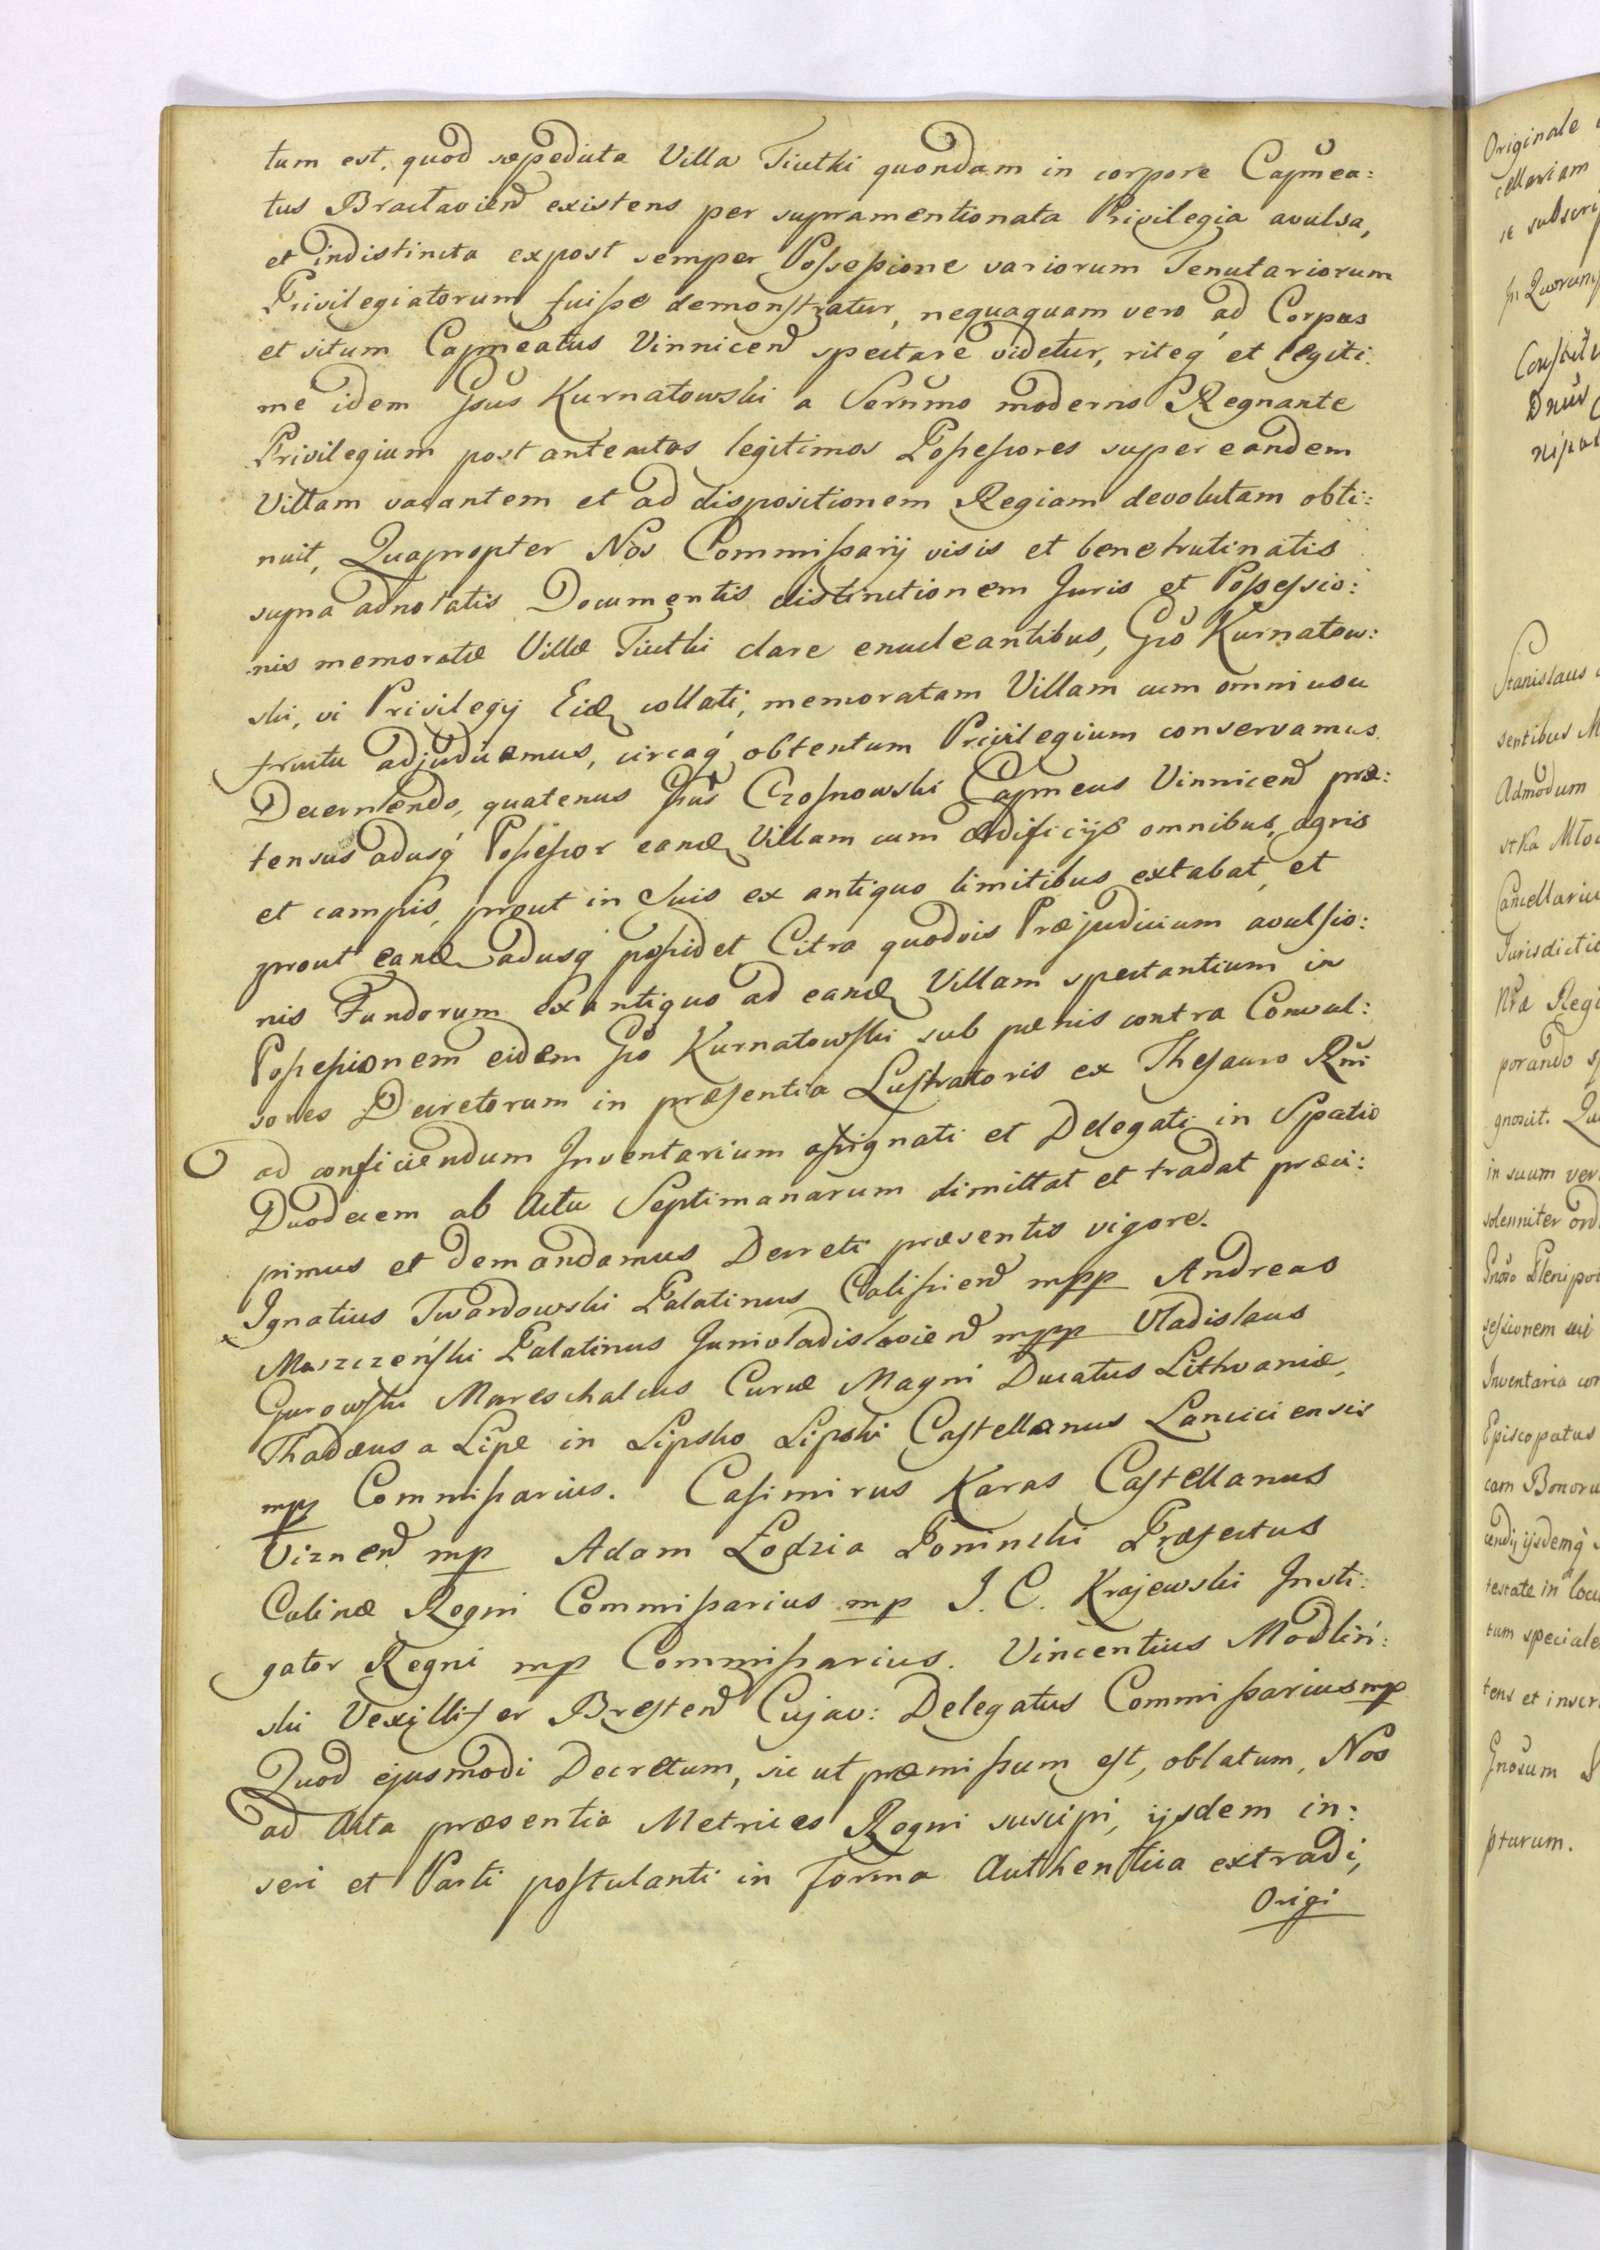 tum est, quod sæpedicta Villa Tiutki quondam in corpore Capnea:
tus Braclavien existens per supramentionata Privilegia avulsa,
et indistincta expost semper Possessione variorum Tenutariorum
Privilegiatorum fuisse demonstratur, nequaquam vero ad Corpus
et situm Capneatus Vinnicen spectare videtur, riteq et legiti:
me idem Gsus Kurnatowski a Sermo moderno Regnante
Privilegium post anteactos legitimos Possessores super eandem
Villam vacantem et ad dispositionem Regiam devolutam obti:
nuit, Quapropter Nos Commissarij visis et bene trutinatis
supra adnotatis Documentis distinctionem Juris et Possessio:
nis memoratæ Villæ Tiutki clare enucleantibus, Gso Kurnatow:
ski, vi Privilegij Eid collati, memoratam Villam cum omni usu
fructu adjudicamus, circaq obtentum Privilegium conservamus.
Decernendo, quatenus Gsus Czosnowski Capneus Vinnicen præ:
tensus adusq Possessor eand Villam cum ædificijs omnibus, agris
et campis, prout in suis ex antiquo limitibus extabat, et
prout eand adusq possidet Citra quodvis Præjudicium avulsio:
nis Fundorum ex antiquo ad eand Villam spectantium in
Possessionem eidem Gso Kurnatowski sub pænis contra Convul:
sores Decretorum in præsentia Lustratoris ex Thesauro Rni
ad conficiendum Inventarium assignati et Delegati in Spatio
Duodecem ab Actu Septimanarum dimittat et tradat præci:
pimus et demandamus Decreti præsentis vigore.
Ignatius Twardowski Palatinus Calissien mpp Andreas
Moszczeński Palatinus Juniovladislavien mpp Vladislaus
Gurowski Mareschalcus Curiæ Magni Ducatus Lithvaniæ,
Thadæus a Lipe in Lipsko Lipski Castellanus Lanciciensis
mpp Commissarius. Casimirus Karas Castellanus
Viznen mp Adam Lodzia Poninski Præfectus
Culinæ Regni Commissarius mp J. C. Krajewski Insti:
gator Regni mp Commissarius. Vincentius Modliń:
ski Vexillifer Bresten Cujav: Delegatus Commissarius mp
Quod ejusmodi Decretum, sic ut præmissum est, oblatum, Nos
ad Acta præsentia Metrices Regni suscipi, ijsdem in:
seri et Parti postulanti in forma Authentica extradi,
Origi
Originale
cellariam
se subscri
in Quorum
Constitu
Dnus
Stanislaus
sentibus
Admodum
stka Młod
Cancellariu
Jurisdictio
Nra Regi
porando
gnoscit. Qu
in suum ver
solenniter ord
Gnoso Plenipot
sessionem sui
Inventaria con
Episcopatus
cam Bonoru
cendi ijsdemq
testate in locu
tum speciale
tens et inscri
Gnosum
pturum.